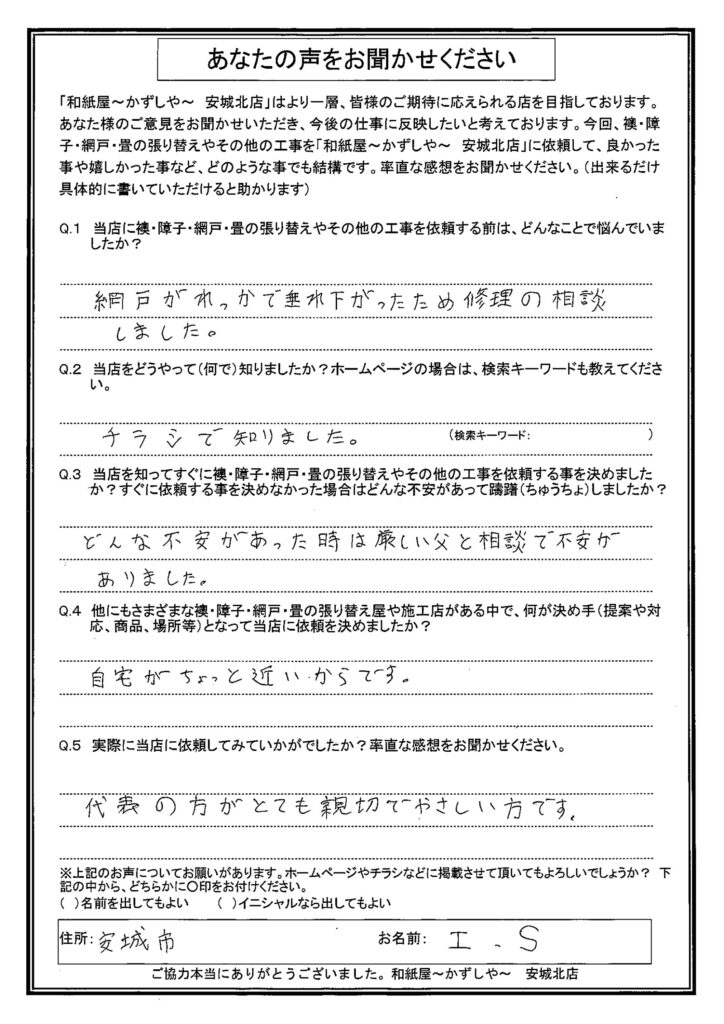 あなたの声をお聞かせください
「和紙屋～かずしや～　安城北店」はより一層、皆様のご期待に応えられる店を目指しております。
あなた様のご意見をお聞かせいただき、今後の仕事に反映したいと考えております。今回、襖・障
子・網戸・畳の張り替えやその他の工事を「和紙屋～かずしや～　安城北店」に依頼して、良かった
事や嬉しかった事など、どのような事でも結構です。率直な感想をお聞かせください。（出来るだけ
具体的に書いていただけると助かります）
Q.1　当店に襖・障子・網戸・畳の張り替えやその他の工事を依頼する前は、どんなことで悩んでいま
したか？
網戸がれっかで垂れ下がったため修理の相談
しました。
Q.2　当店をどうやって（何で）知りましたか？ホームページの場合は、検索キーワードも教えてくださ
い。
チラシで知りました。　（検索キーワード：　）
Q.3　当店を知ってすぐに襖・障子・網戸・畳の張り替えやその他の工事を依頼する事を決めました
か？すぐに依頼する事を決めなかった場合はどんな不安があって躊躇（ちゅうちょ）しましたか？
どんな不安があった時は厳しい父と相談で不安が
ありました。
Q.4　他にもさまざまな襖・障子・網戸・畳の張り替え屋や施工店がある中で、何が決め手（提案や対
応、商品、場所等）となって当店に依頼を決めましたか？
自宅がちょっと近いからです。
Q.5　実際に当店に依頼してみていかがでしたか？率直な感想をお聞かせください。
代表の方がとても親切でやさしい方です。
※上記のお声についてお願いがあります。ホームページやチラシなどに掲載させて頂いてもよろしいでしょうか？　下
記の中から、どちらかに〇印をお付けください。
（　）名前を出してもよい　（　）イニシャルなら出してもよい
住所：安城市　お名前：エ．S
ご協力本当にありがとうございました。和紙屋～かずしや～　安城北店